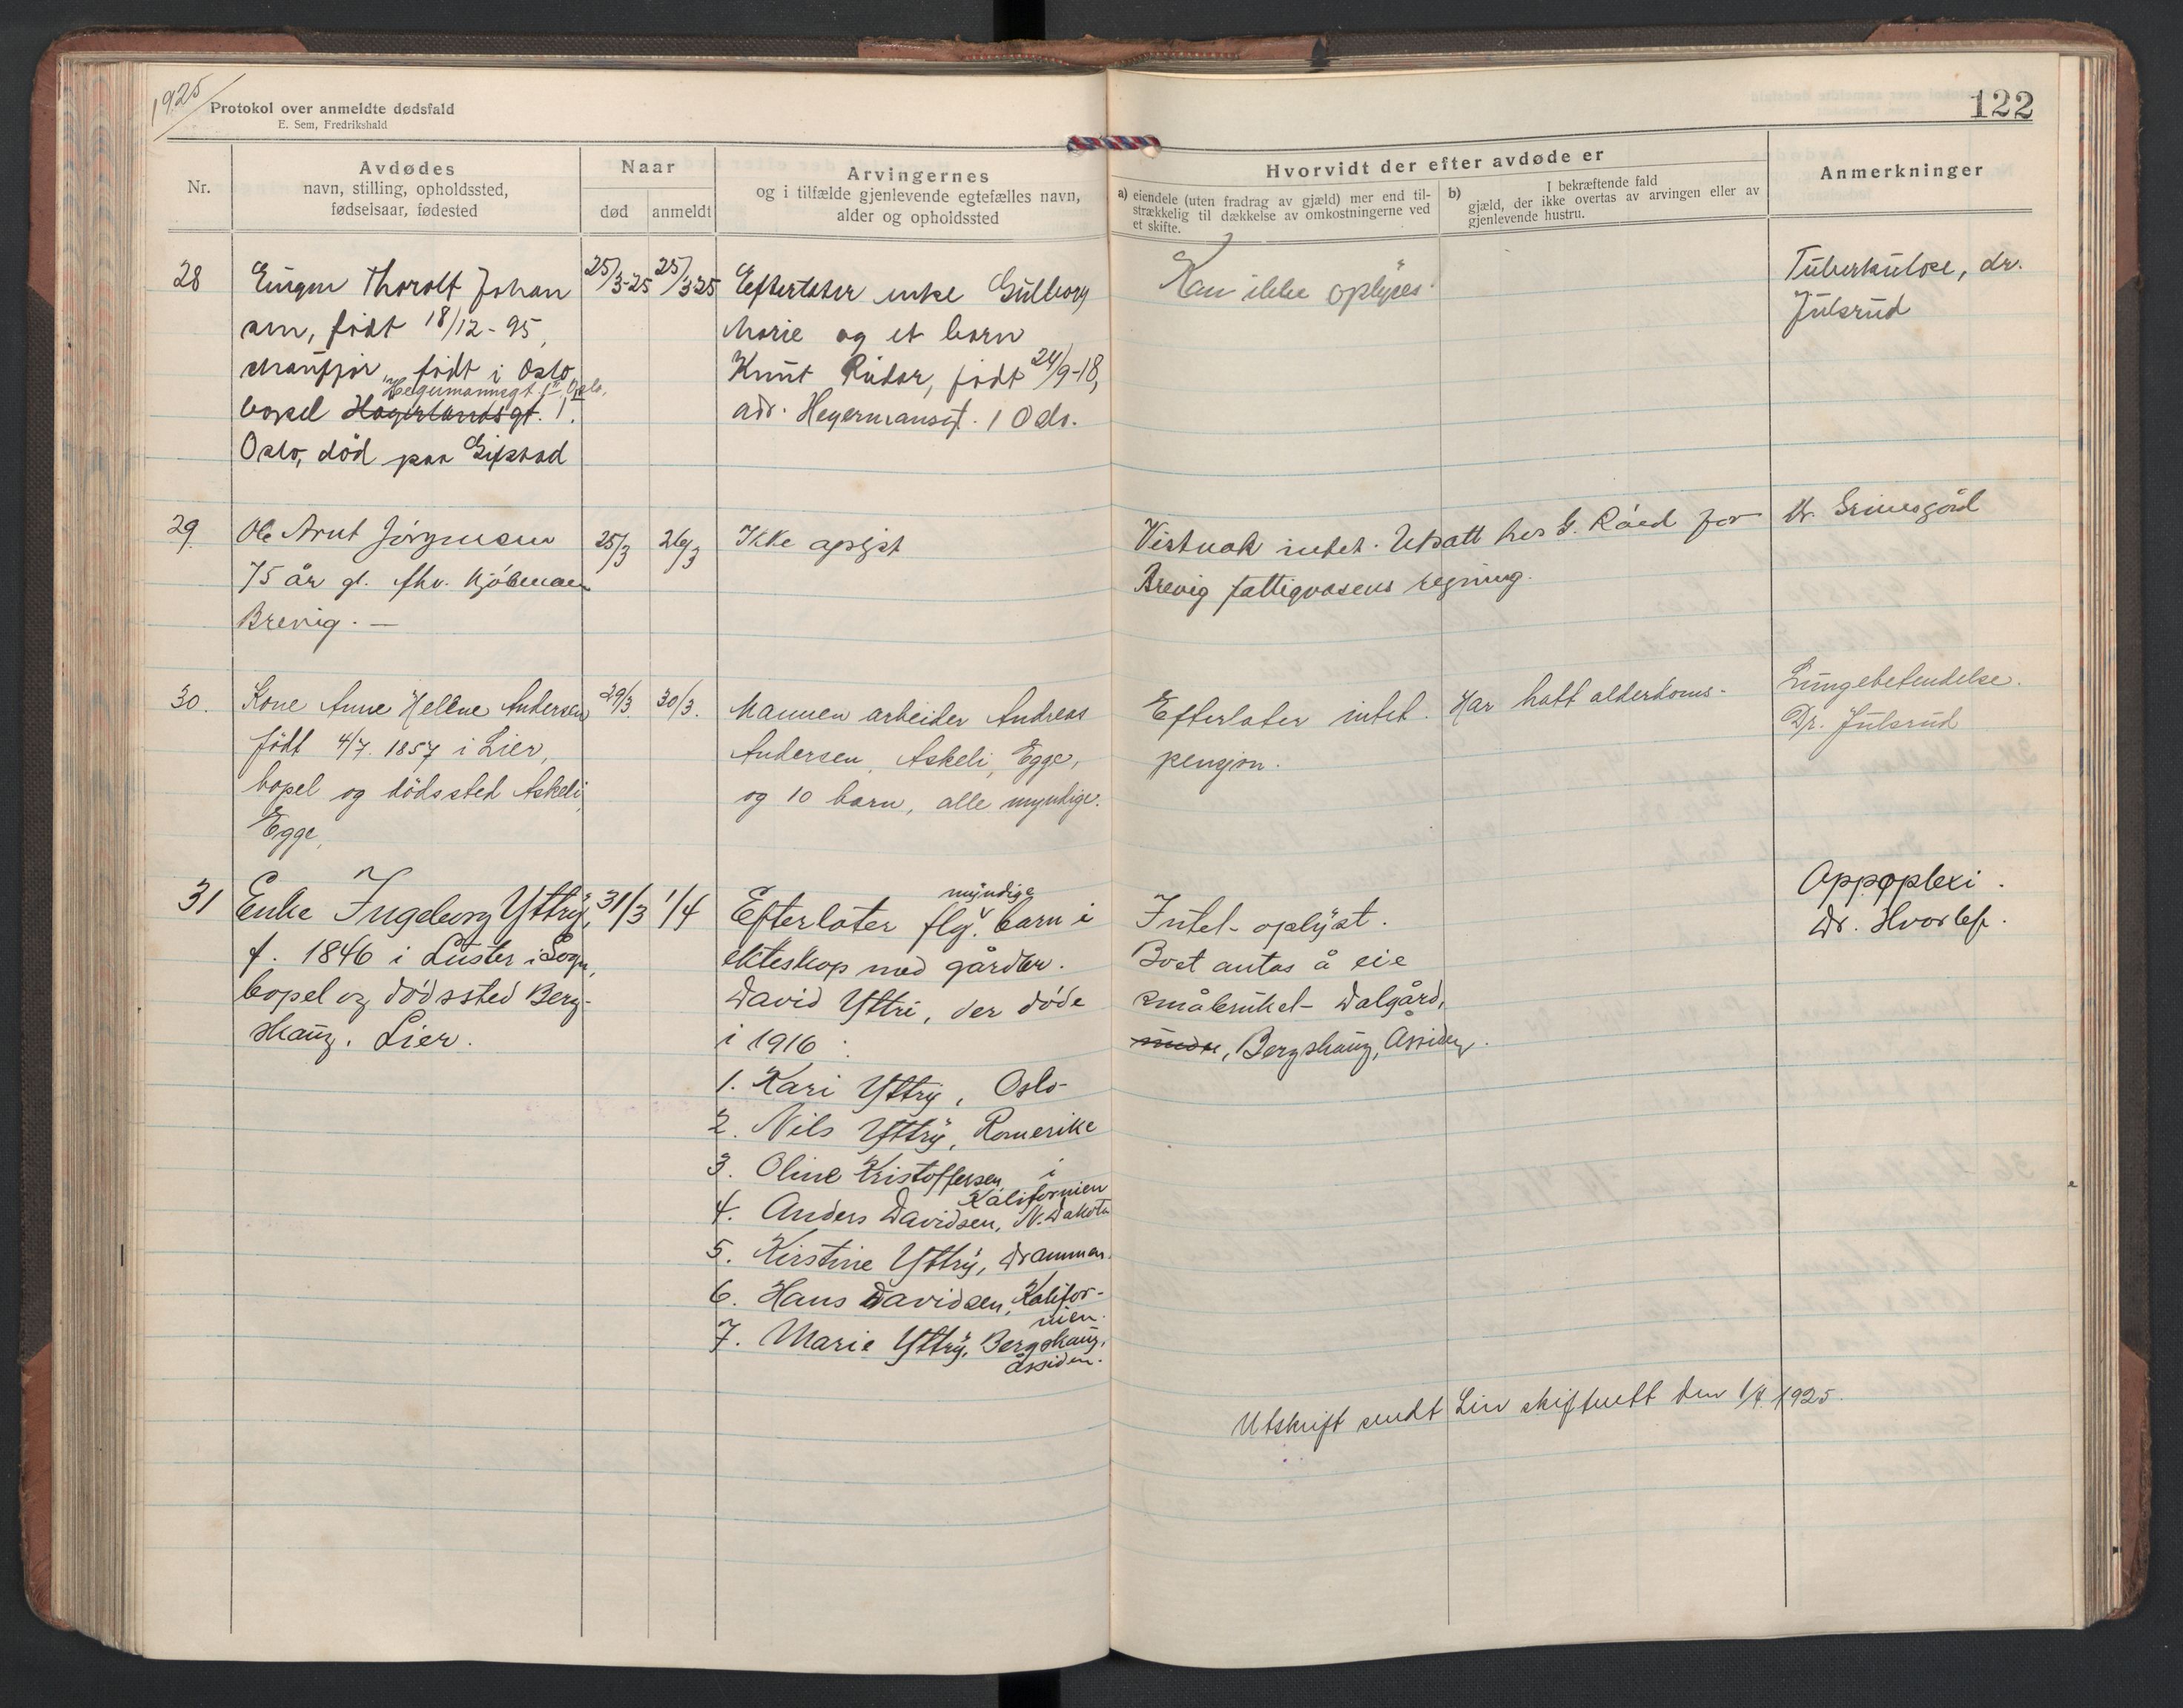 1925
Protokol over anmeldte dødsfald
E. Sem, Fredrikshald
122
Nr.
Avdødes
navn, stilling, opholdssted,
fødselsaar, fødested
Naar
død
anmeldt
Arvingernes
og i tilfælde gjenlevende egtefælles navn,
alder og opholdssted
Hvorvidt der efter avdøde er
a) eiendele (uten fradrag av gjæld) mer end til-
strækkelig til dækkelse av omkostningerne ved
et skifte.
b) I bekræftende fald
gjæld, der ikke overtas av arvingen eller av
gjenlevende hustru.
Anmerkninger
28
Eugen Thorolf Johan
sen, födt 18/12-95,
chauffør, födt i Oslo,
Hegermannsgt. 1 Oslo.
bopel Hagerlandsgt. 1.
Oslo, död paa
25/3-25
25/3 25
Efterlater enke Gulborg
Marie og et barn
Knut Reidar, födt 24/9-18,
adr. Hegermansgt. 1 Oslo.
Kan ikke oplyses.
Tuberkulose, dr.
Julsrud
29.
Ole Arnt Jörgensen
75 år gl. fhv. kjöbmann
Brevig. —
25/3
26/3
Ikke oplyst
Vistnok intet. Utsatt hos G. Råed for
Brevig fattigvæsens regning.
Dr.
30.
Kone Anne Hellene Andersen
födt 4/7. 1857 i Lier,
bopel og dödssted Askeli,
Egge,
29/3.
30/3.
Mannen arbeider Andreas
Andersen, Askeli, Egge,
og 10 barn, alle myndige.
Efterlater intet. Har hatt alderdoms-
pensjon.
Lungebetendelse.
Dr. Julsrud
31
Enke Ingeborg Yttrÿ,
f. 1846 i Luster i Sogn,
bopel og dödssted Berg-
skaug. Lier.
31/3
1/4
myndige
Efterlater flg. barn i
ekteskap med gårdbr.
David Yttri, der döde
i 1916:
1. Kari Yttrÿ, Oslo
2. Nils Yttrÿ, Romerike
3. Oline Kristoffersen i
Kalifornien
4. Anders Davidsen, N. Dakota
5. Kirstine Yttrÿ, Drammen.
6. Hans Davidsen, Kalifor-
nien.
7. Marie Yttrÿ, Bergskaug,
Åssiden.
Intet oplyst.
Boet antas å eie
småbruket Dalgård,
, Bergskaug, Åssiden.
Appoplexi.
Dr. Hvoslef.
Utskrift sendt Lier skifterett den 1/4 1925.